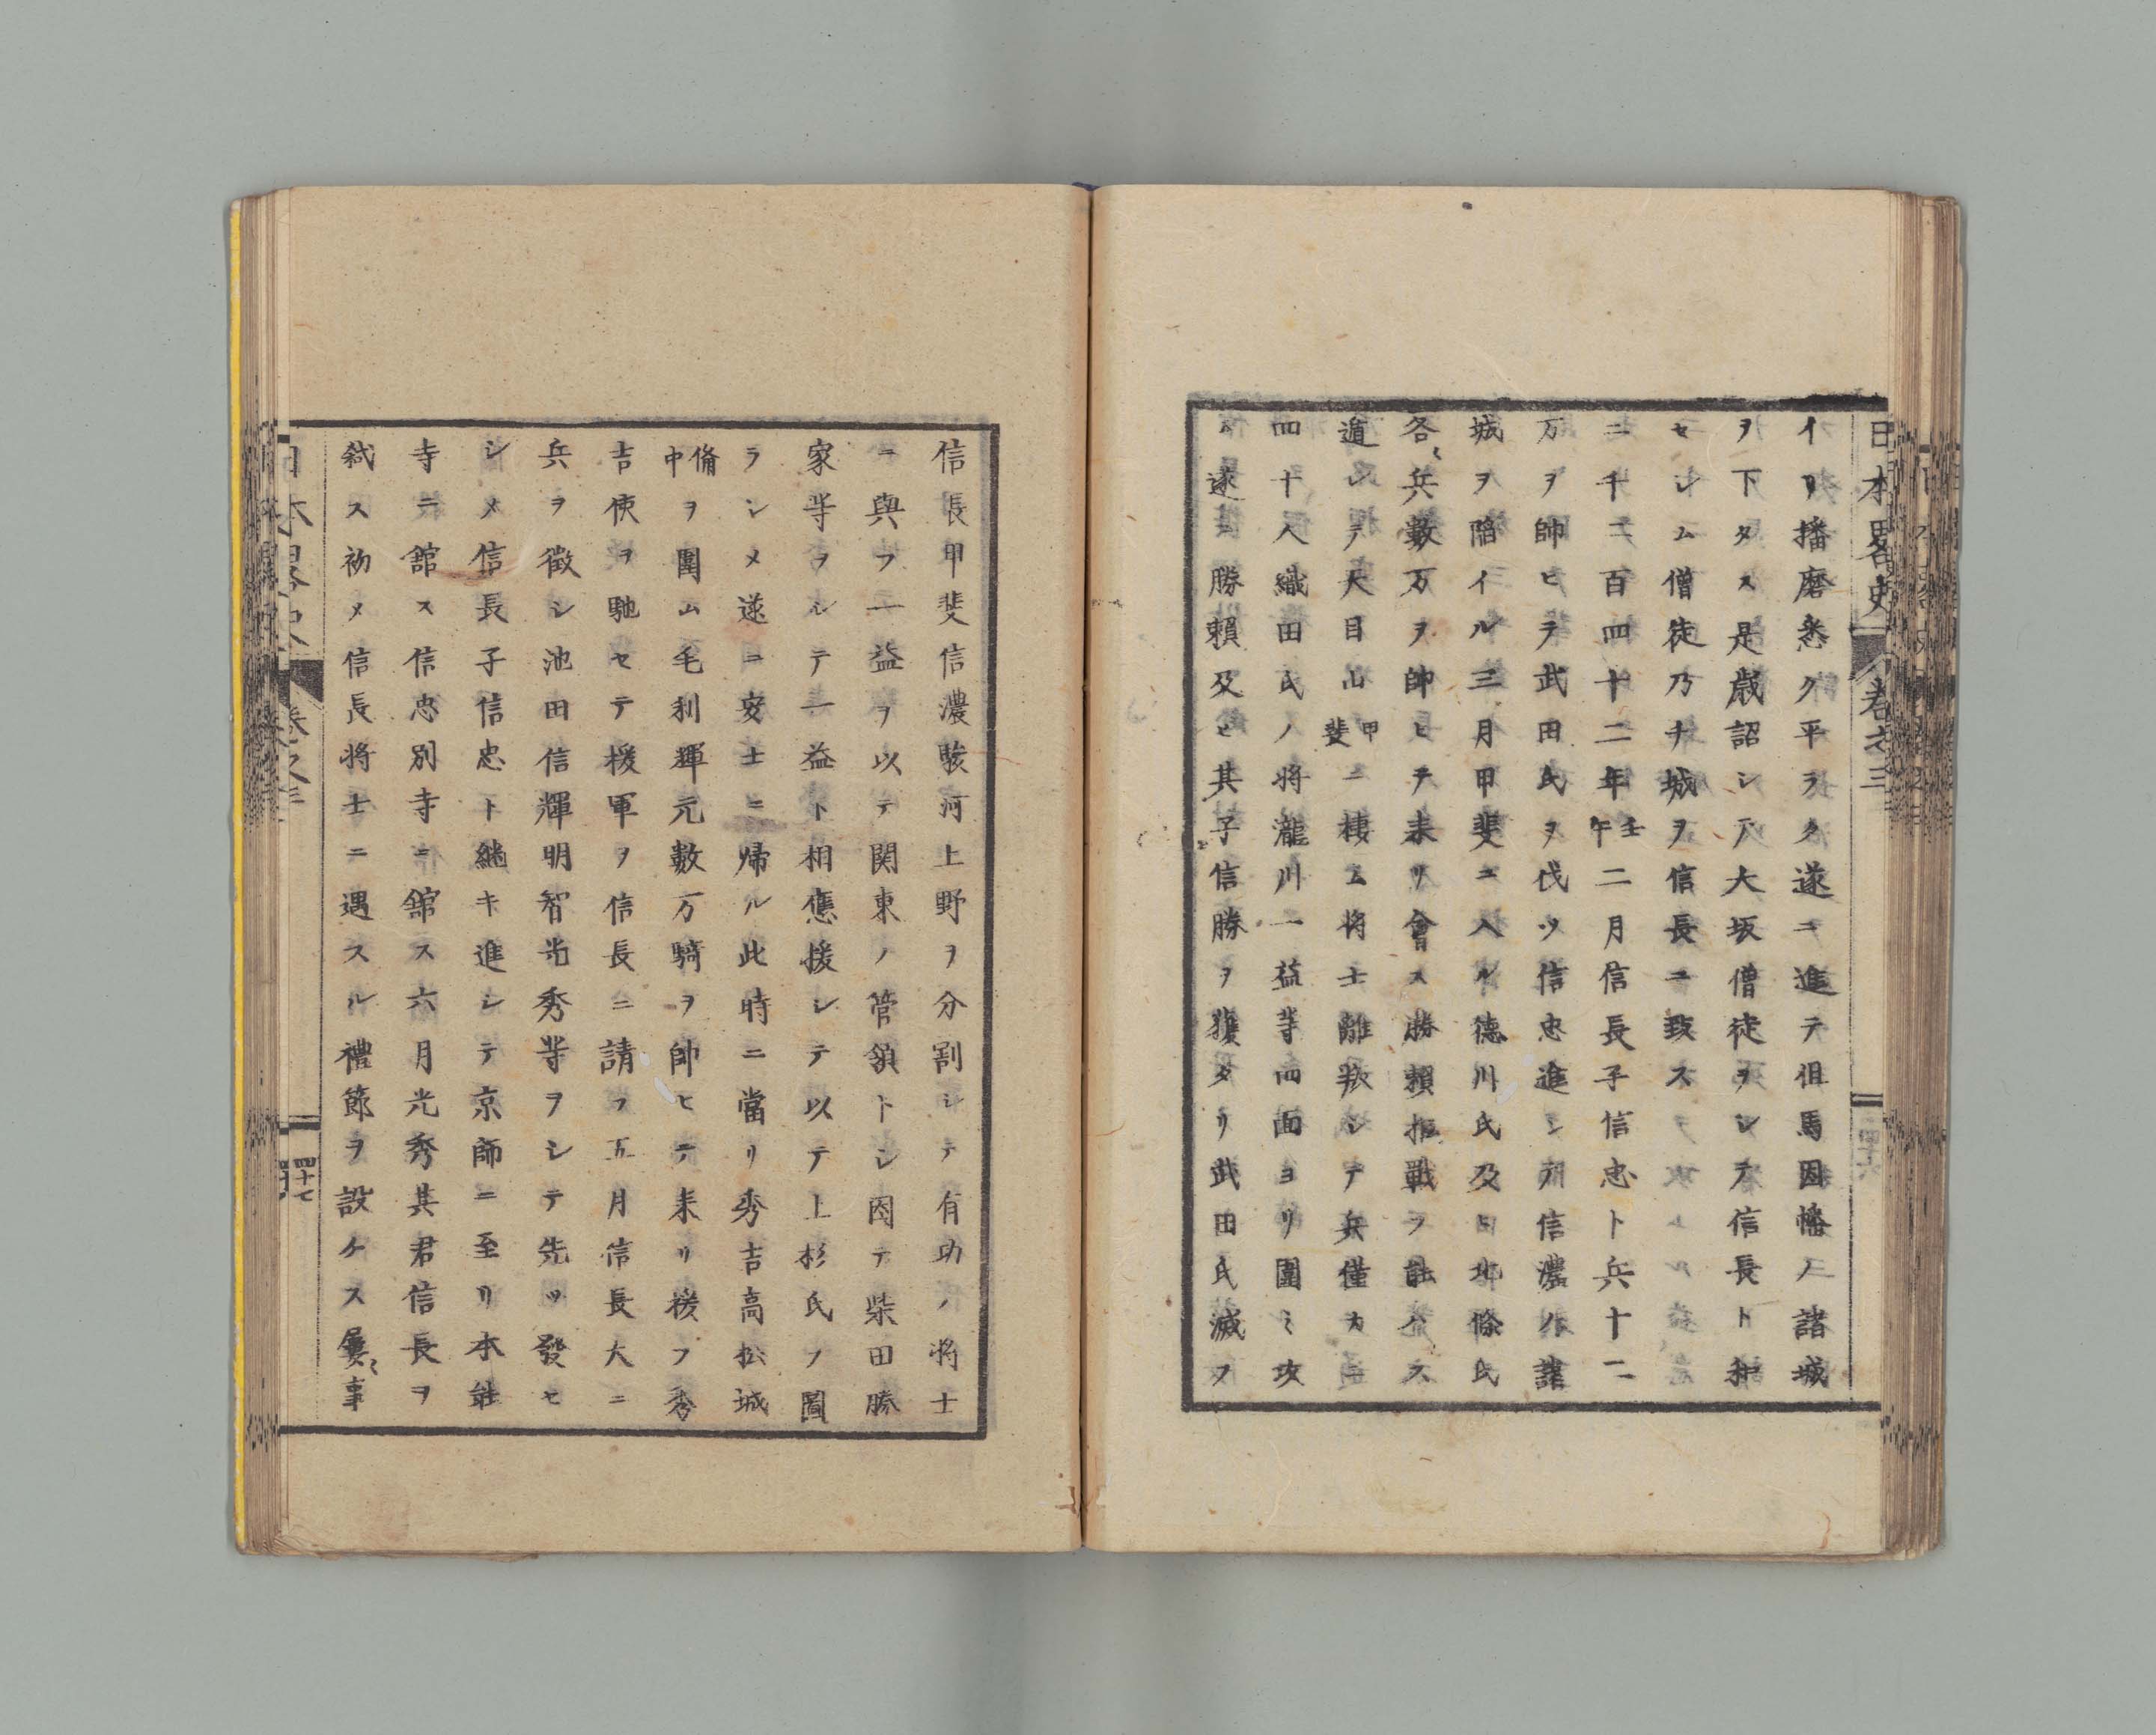 日本畧史 卷之三
イリ播磨悉ク平ラク遂ニ進テ但馬因幡ノ諸城
ヲ下タス是歳詔シテ大坂僧徒ヲシテ信長ト和
セシム僧徒乃チ城ヲ信長ニ致ス
二千二百四十二年壬午二月信長子信忠ト兵十二
万ヲ帥ヒテ武田氏ヲ伐ツ信忠進ミテ信濃ノ諸
城ヲ陥イル三月甲斐ニ入ル德川氏及ヒ北條氏
各〻兵數万ヲ帥ヒテ来リ會ス勝賴拒戰ヲ能ハス
遁レテ天目山甲斐ニ棲ム将士離叛シテ兵僅カニ
四十人織田氏ノ将瀧川一益等四面ヨリ圍ミ攻
メ遂ニ勝賴及ヒ其子信勝ヲ獲タリ武田氏滅フ
信長甲斐信濃駿河上野ヲ分割シテ有功ノ将士
ニ與フ一益ヲ以テ関東ノ管領トシ因テ柴田勝
家等ヲシテ一益ト相應援シテ以テ上杉氏ヲ圖
ラシメ遂ニ安土ニ帰ル此時ニ當リ秀吉高松城
備中ヲ圍ム毛利輝元數万騎ヲ帥ヒテ来リ援フ秀
吉使ヲ馳セテ援軍ヲ信長ニ請フ五月信長大ニ
兵ヲ徴シ池田信輝明智光秀等ヲシテ先ッ發セ
シメ信長子信忠ト継キ進シテ京師ニ至リ本能
寺ニ舘ス信忠別寺ニ舘ス六月光秀其君信長ヲ
弑ス初メ信長将士ニ遇スル禮節ヲ設ケス屢〻事
日本畧史 卷之三
四十七